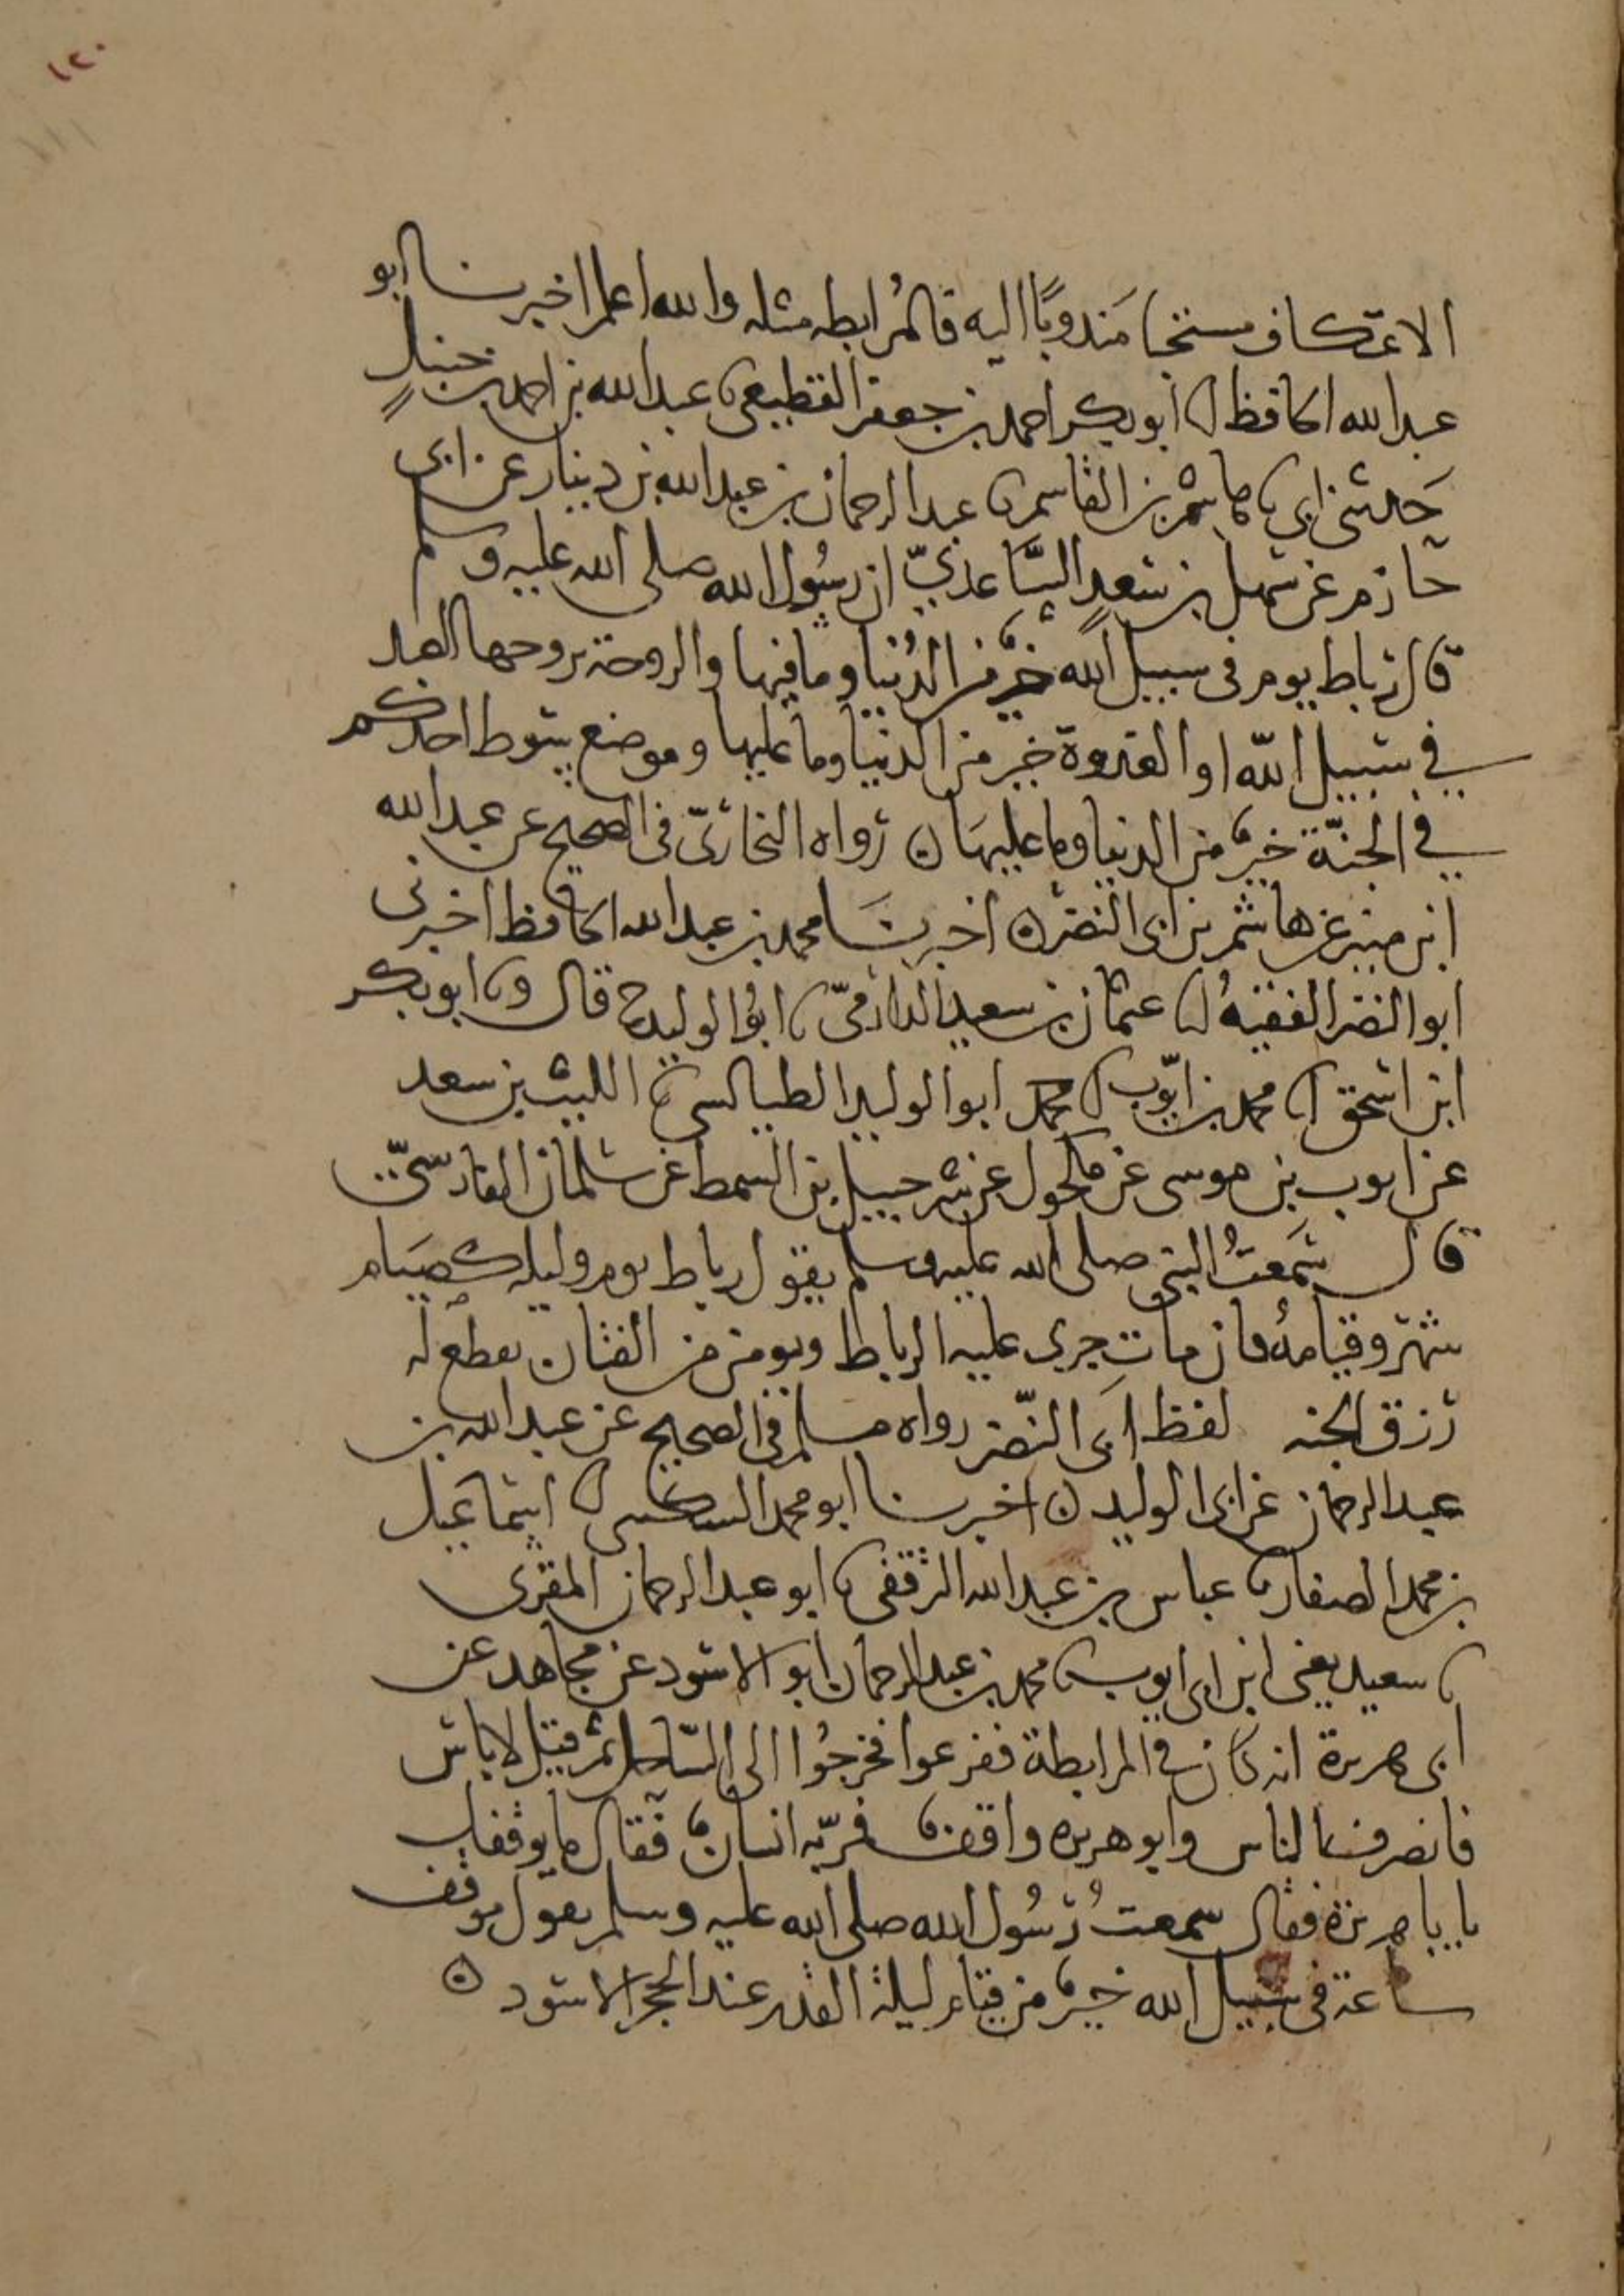 ١٢٠
الاعتكاف مستحبا مَندوبًا اليه فالمُرابطه مثله والله اعلم اخبرنا ابو
عبد الله الحافظ انا ابو بكر احمد بن جعفر القطيعي نا عبد الله بن احمد بن حنبلٍ
حَدثني ابي نا هاشم بن القاسم نا عبد الرحمان بن عبد الله بن دينار عن ابي
حازم عن سهل بن سعدٍ السَّاعديّ ان رسُول الله صلى الله عليه وسلم
قال رباط يوم في سبيل الله خيرٌ من الدُنيا وما فيها والروحة يروحها العبد
في سبيل الله او الغدوة خير من الدنيا وما عليها وموضع سوط احدكم
في الجنّة خيرٌ من الدنيا وما عليها ن رواه البخاريّ في الصحيح عن عبد الله
ابن منير عن هاشم بن ابي النضر ن اخبرنَا محمد بن عبد الله الحافظ اخبرني
ابو النضر الفقيهُ انا عثمان بن سعيد الدارميّ نا ابوُ الوليد ح قال ونا ابو بكر
ابن اسحق انا محمد بن ايّوب انا محمد ابو الوليد الطيالسي نا الليث بن سعد
عن ايوب بن موسى عن مكحول عن شرحبيل بن السمط عن سلمان الفارسيّ
قال سَمَعتُ النبي صلى الله عليه وسلم يقول رباط يوم وليله كصيَام
شهر وقيامهُ فان مات جرى عليه الرباط ويومن من الفتان ويقطع له
رزق الجنه لفظ ابي النّضر رواه مسلم في الصحيح عن عبد الله بن
عبد الرحمان عن ابي الوليد ن اخبرنا ابو محمد السكري انا اسماعيل
بن محمد الصفار نا عباس بن عبد الله الترقفي نا ابو عبد الرحمان المقرى
نا سعيد يعني ابن ابي ايوب نا محمد بن عبد الرحمان ابو الاسود عن مجاهد عن
ابي هريرة انه كان في المرابطة ففزعوا فخرجُوا الى السّاحل ثم قيل لا باس
فانصرف الناس وابو هريره واقفٌ فمرّ به انسانٌ فقال ما يوقفك
يا با هريرة فقال سمعتُ رسُول الله صلى الله عليه وسلم يقول موقف
ساعة في سبيل الله خيرٌ من قيام ليلة القدر عند الحجر الاسود ن